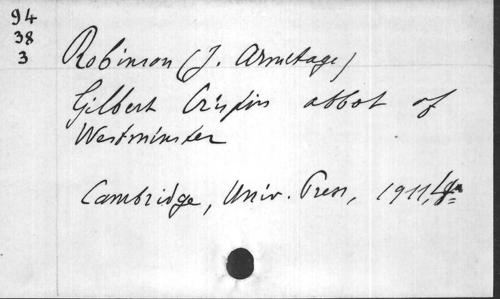 94
38
3
Robinson (J. Armitage)
Gilbert Crispin abbot of
Westminster
Cambridge, Univ. Press, 1911,